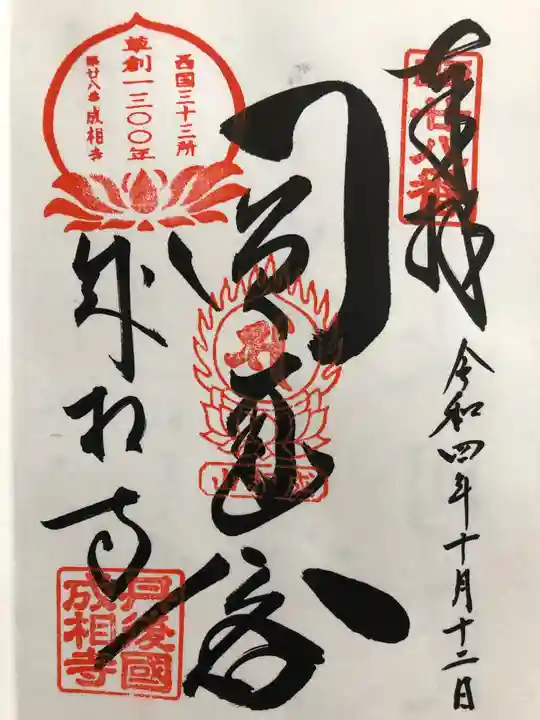 奉拝
西国廿八番
令和四年十月十二日
圓通閣
成相寺
西国三十三所
草創一三〇〇年
第廿八番 成相寺
丹後國
成相寺